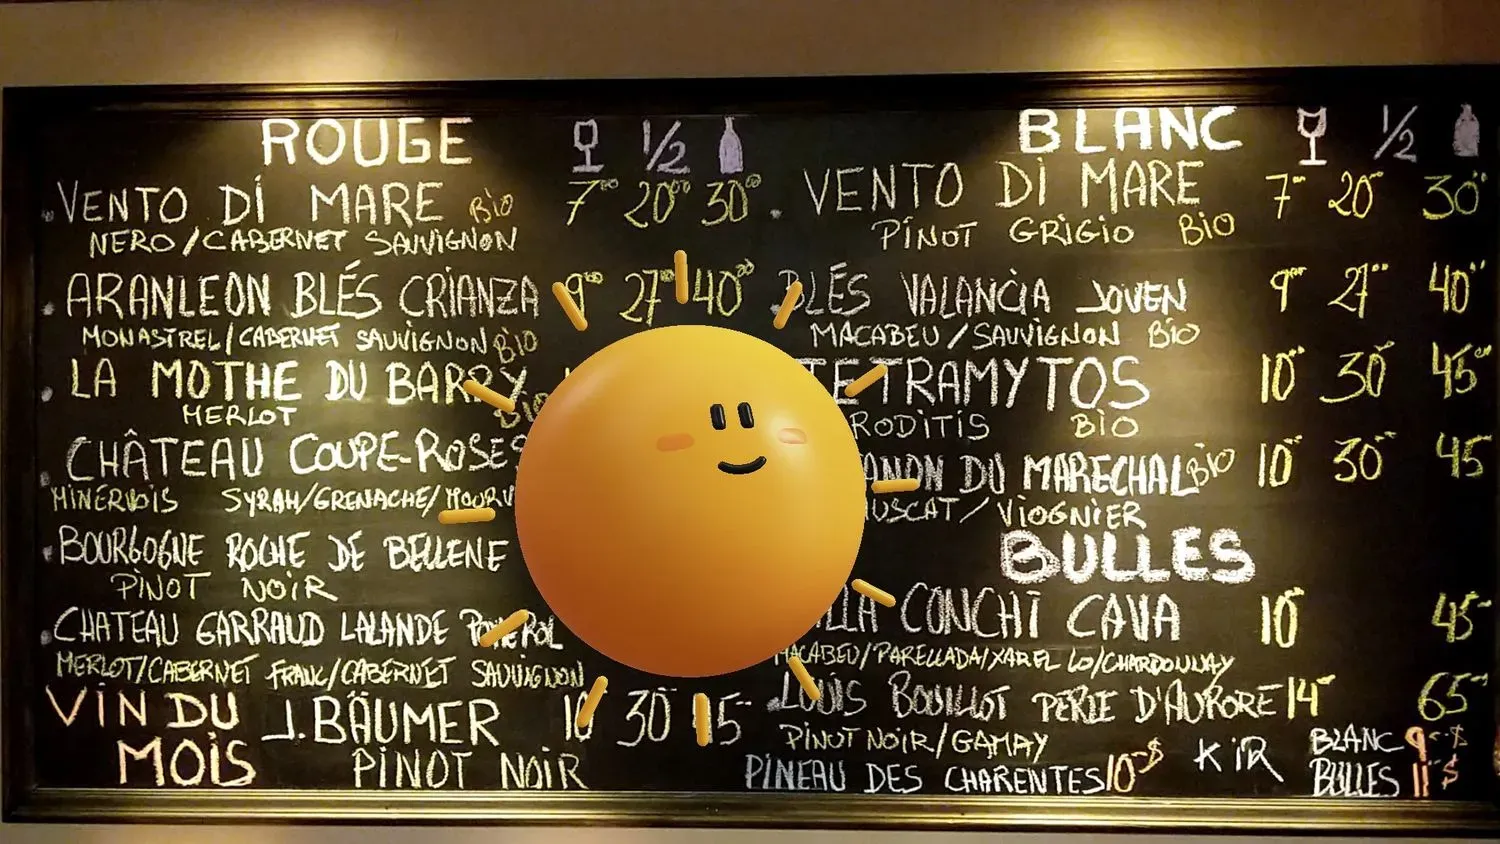 ROUGE 1/2
VENTO DI MARE BIO 7 20 30
NERO/CABERNET SAUVIGNON
ARANLEON BLÉS CRIANZA 9 27 40
MONASTREL/CABERNET SAUVIGNON BIO
LA MOTHE DU BARRY
MERLOT BIO
CHÂTEAU COUPE-ROSES
MINERVOIS SYRAH/GRENACHE/
BOURGOGNE ROCHE DE BELLENE
PINOT NOIR
CHATEAU GARRAUD LALANDE POMEROL
MERLOT/CABERNET FRANC/CABERNET SAUVIGNON
VIN DU MOIS
J.BÄUMER 30
PINOT NOIR
BLANC 1/2
VENTO DI MARE 7 20 30
PINOT GRIGIO BIO
BLÉS VALANCIA JOVEN 9 27 40
MACABEU/SAUVIGNON BIO
TETRAMYTOS 10 30 45
RODITIS BIO
DU MARECHAL BIO 10 30 45
VIOGNIER
BULLES
CONCHI CAVA 10 45
MACABEU/PARELLADA/XAREL LO/CHARDONNAY
LOUIS BOUILLOT PERLE D'AURORE 14 65
PINOT NOIR/GAMAY
PINEAU DES CHARENTES 10 $
KIR BLANC 9 $
BULLES 11 $